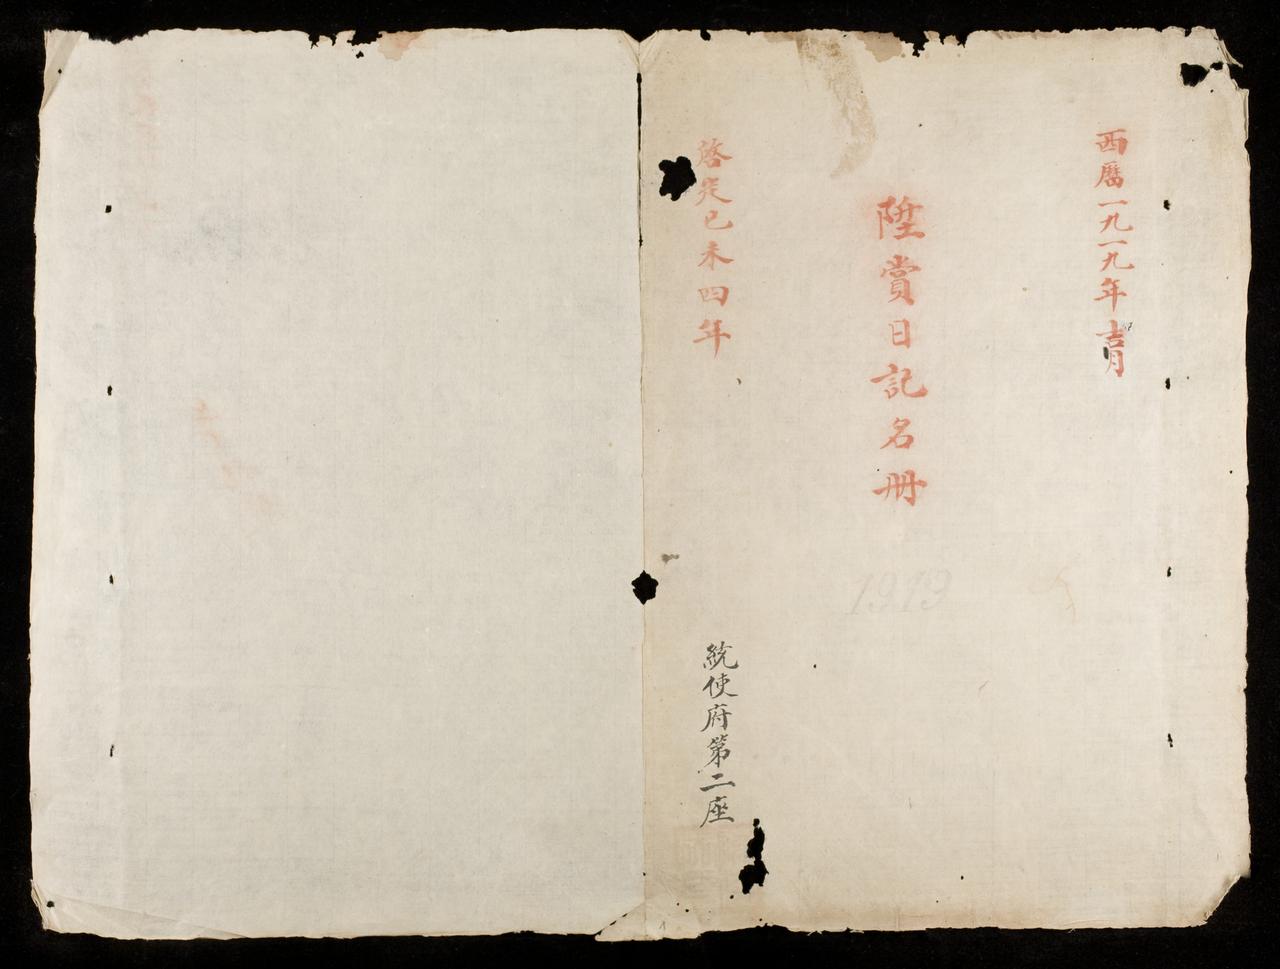 西曆一九一九年吉月
陞賞日記名冊
1919
啓定己未四年
統使府第二座
1